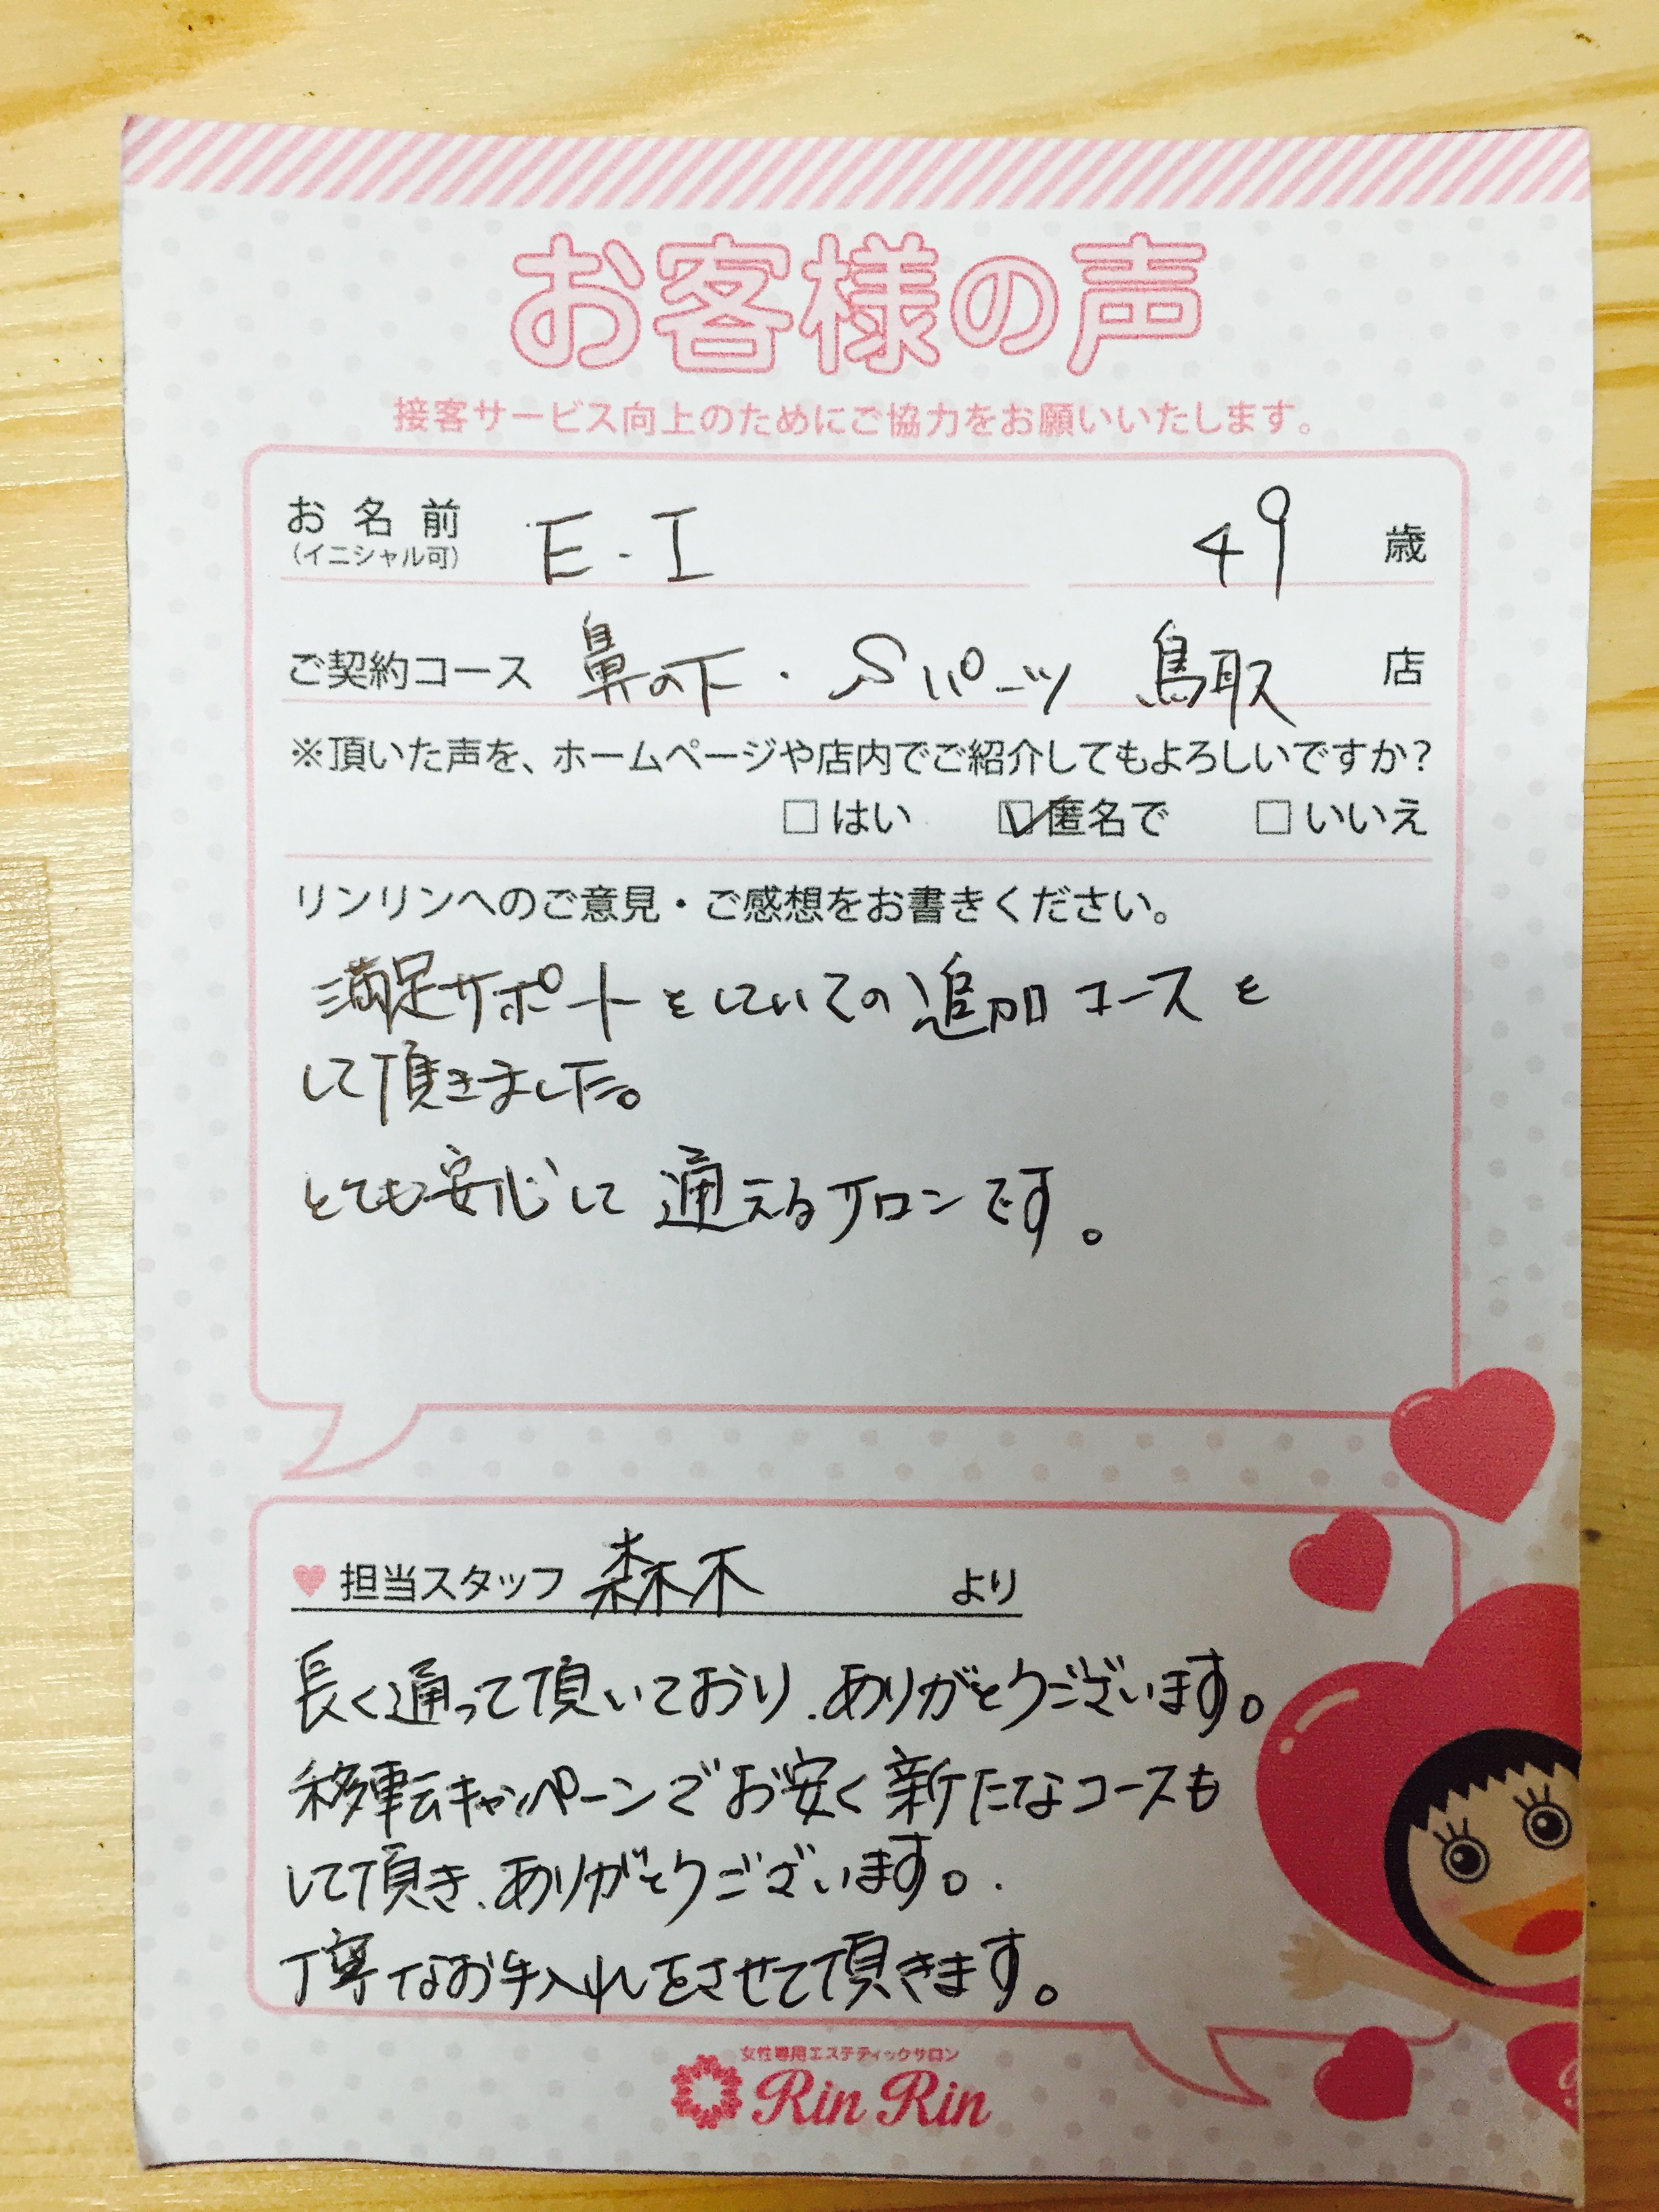 お客様の声
接客サービス向上のためにご協力をお願いいたします。
お名前 E.I 49 歳
(イニシャル可)
ご契約コース 鼻の下・Sパーツ 鳥取 店
※頂いた声を、ホームページや店内でご紹介してもよろしいですか?
□はい ☑匿名で □いいえ
リンリンへのご意見・ご感想をお書きください。
満足サポートをしていての追加コースを
して頂きました。
とても安心して通えるサロンです。
♥担当スタッフ 森木 より
長く通って頂いており、ありがとうございます。
移転キャンペーンでお安く新たなコースも
して頂き、ありがとうございます。
丁寧なお手入れをさせて頂きます。
女性専用エステティックサロン
Rin Rin